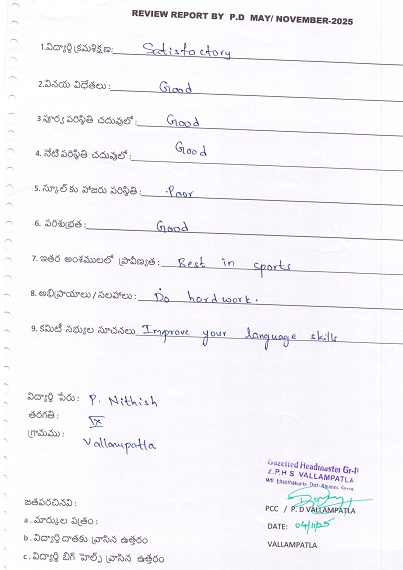 REVIEW REPORT BY P.D MAY/ NOVEMBER-2025
1.విద్యార్థి క్రమశిక్షణ: Satisfactory
2.వినయ విధేతలు: Good
3 పూర్వ పరిస్థితి చదువులో: Good
4. నేటి పరిస్థితి చదువులో: Good
5. స్కూల్ కు హాజరు పరిస్థితి: Poor
6. పరిశుభ్రత: Good
7. ఇతర అంశములలో ప్రావీణ్యత: Best in sports
8. అభిప్రాయాలు/సలహాలు: Do hardwork.
9. కమిటీ సభ్యుల సూచనలు Improve your language skills
విద్యార్థి పేరు: P. Nithish
తరగతి: IX
గ్రామము: Vallampatla
Gazetted Headmaster Gr-II
Z.P.H S VALLAMPATLA
PCC / P.D VALLAMPATLA
జతపరచినవి:
DATE: 04/11/25
a. మార్కుల పత్రం:
b. విద్యార్థి దాతకు వ్రాసిన ఉత్తరం
VALLAMPATLA
c. విద్యార్థి బిగ్ హెల్ప్ వ్రాసిన ఉత్తరం